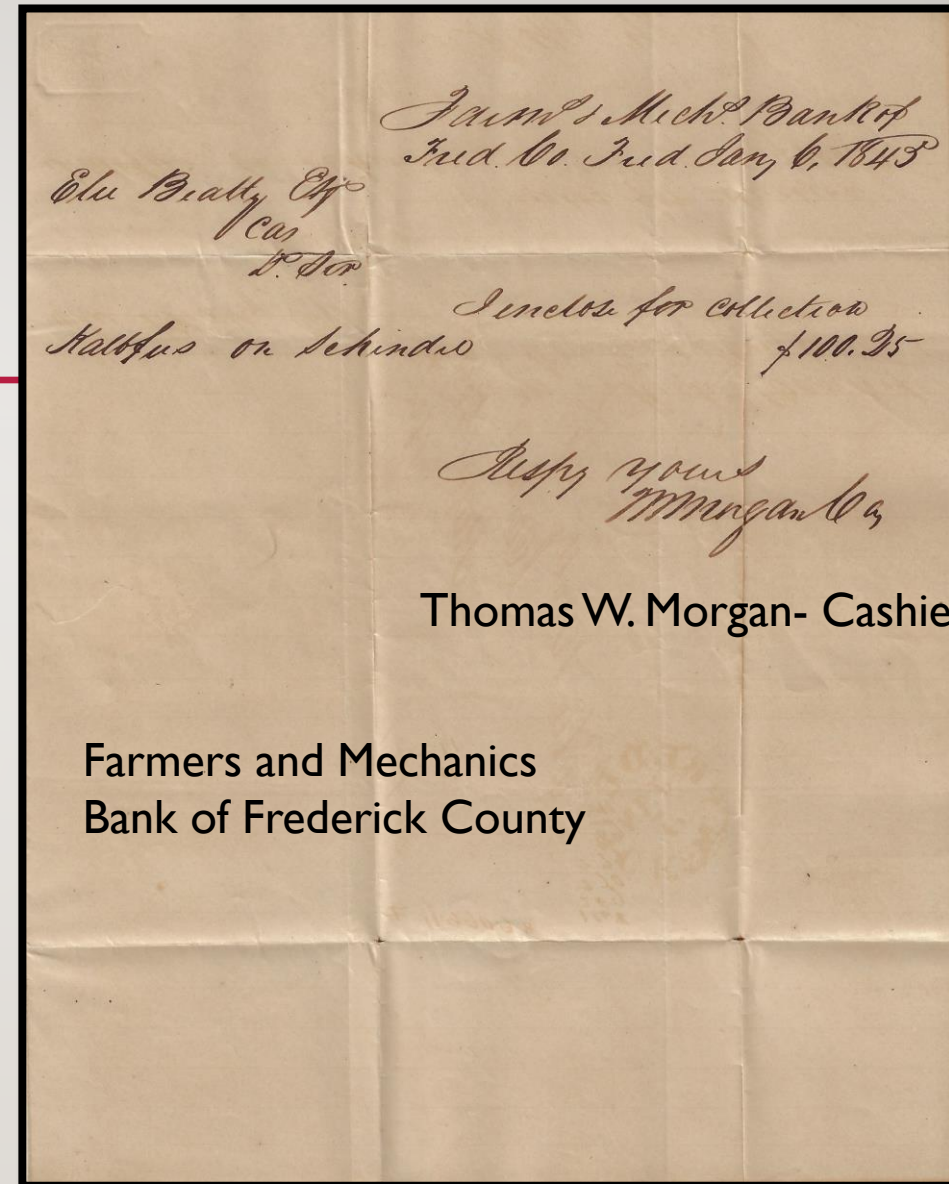 Farmrs & Mechs Bank of
Fred. Co. Fred. Jany 6, 1843
Elie Beatty Esq
Cas
Dr Sir
I enclose for collection
Kalbfus on Schindle $100.25
Respy yours
TWMorgan Cas
Thomas W. Morgan- Cashie
Farmers and Mechanics
Bank of Frederick County